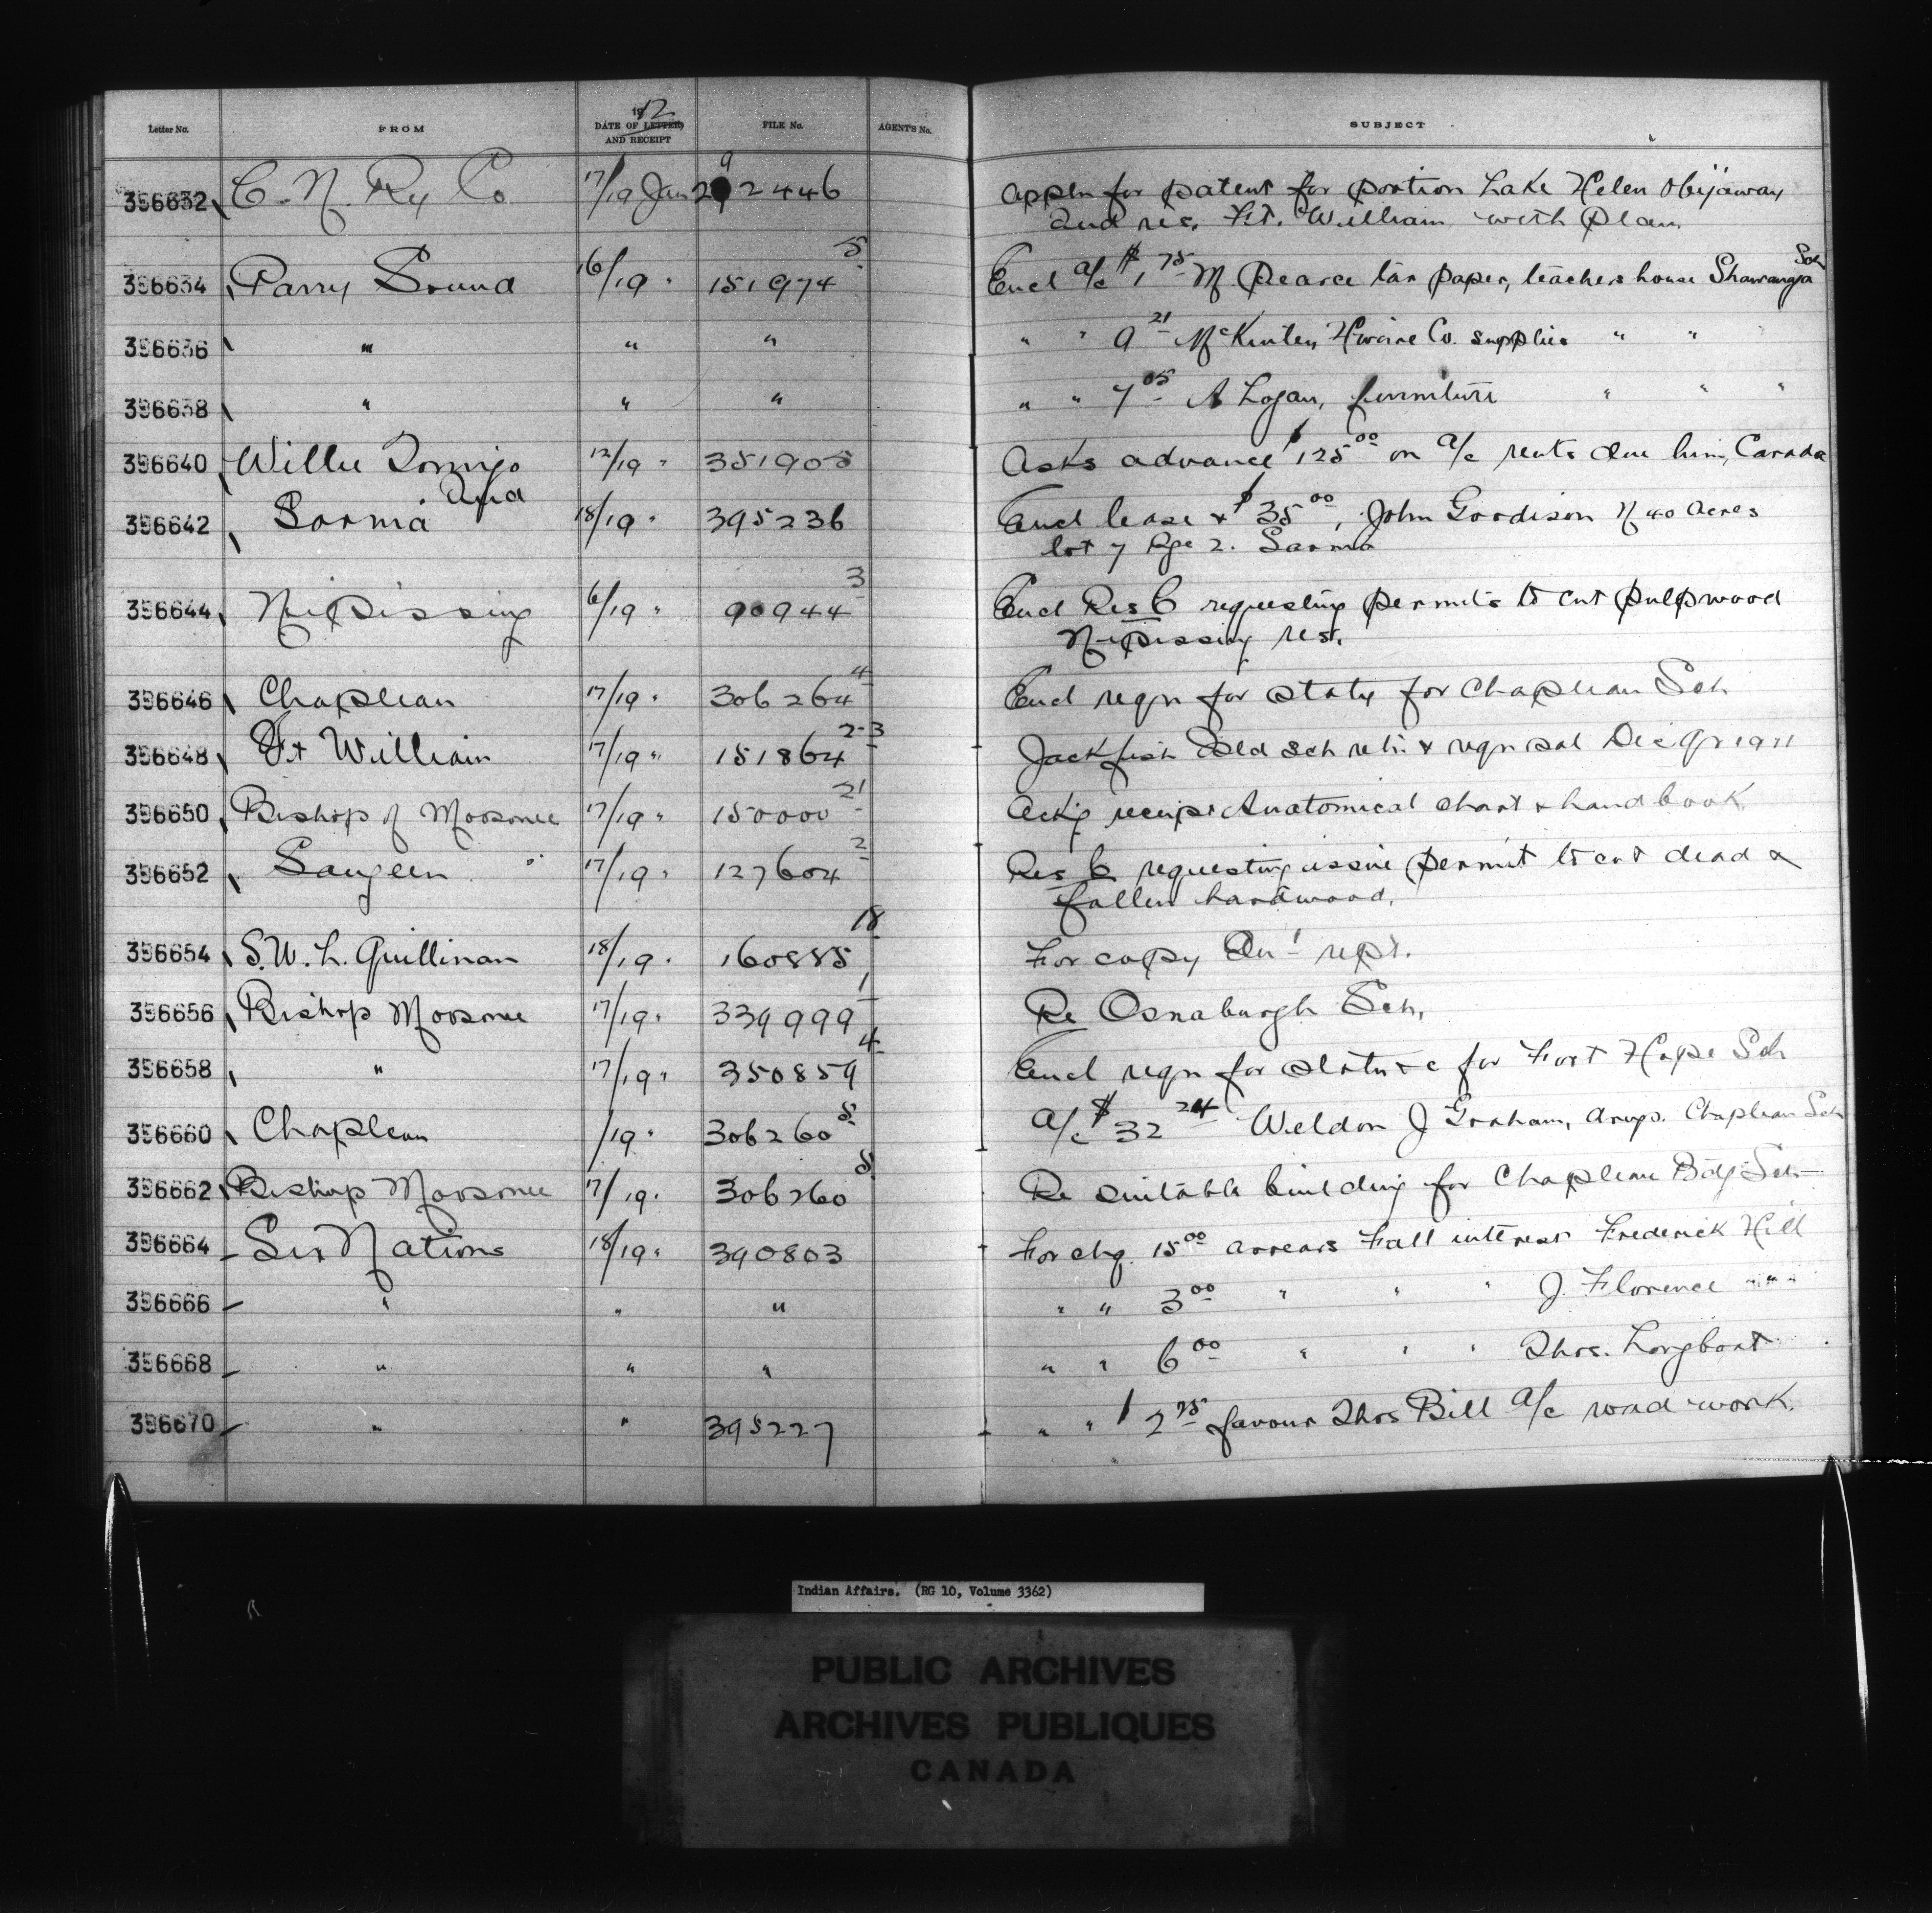 Letter No. FROM 1912 DATE OF LETTER AND RECEIPT FILE No. AGENT'S No. SUBJECT
396632 C. N. Ry Co 17/19 Jan 292446 Appln for patent for portion Lake Helen
and res. Ft. William with plan
396634 Parry Sound 16/19 " 151974 5 Encl a/c $1 75 M Pearce tar paper, teachers house Shawanaga Sch
396636 " " " " " 9 21 McKinley Hware Co. supplies " "
396638 " " " " " 7 05 A Logan, furniture " " "
396640 Willie 12/19 " 351905 Asks advance $125 00 on a/c rents due him, Carada
396642 Sarnia 18/19 " 395236 Encl lease & $35 00, John Goodison N 40 acres
lot 7 Rge 2. Sarnia
396644 Nipissing 6/19 " 90944 3 Encl Res C requesting permits to cut pulpwood
Nipissing res.
396646 Chapleau 17/19 " 306264 4 Encl reqn for staty for Chapleau Sch
396648 Ft William 17/19 " 151864 2-3 Jackfish Isld sch retn & reqn sal Dec qr 1911
396650 Bishop of Moosonee 17/19 " 150000 21 Ack'g receipt Anatomical chart & handbook
396652 Saugeen 17/19 " 127604 2 Res C requesting issue permit to cut dead &
fallen hardwood.
396654 S. W. L. Quillinan 18/19 " 160885 18 For copy An'l rept.
396656 Bishop Moosonee 17/19 " 339999 1 Re Osnaburgh Sch.
396658 " 17/19 " 350859 4 Encl reqn for for Fort Hope Sch
396660 Chapleau /19 " 306260 5 A/c $32 24 Weldon J Graham, drugs. Chapleau Sch
396662 Bishop Moosonee 17/19 " 306260 5 Re suitable building for Chapleau Bdg Sch
396664 Six Nations 18/19 " 390803 For chq. 15 00 arrears Fall interest Frederick Hill
396666 " " " " " 3 00 " " " J. Florence " " "
396668 " " " " " 6 00 " " " Thos. Longboat
396670 " " 395227 " " $2 75 favour Thos Bill a/c road work.
Indian Affairs. (RG 10, Volume 3362)
PUBLIC ARCHIVES
ARCHIVES PUBLIQUES
CANADA